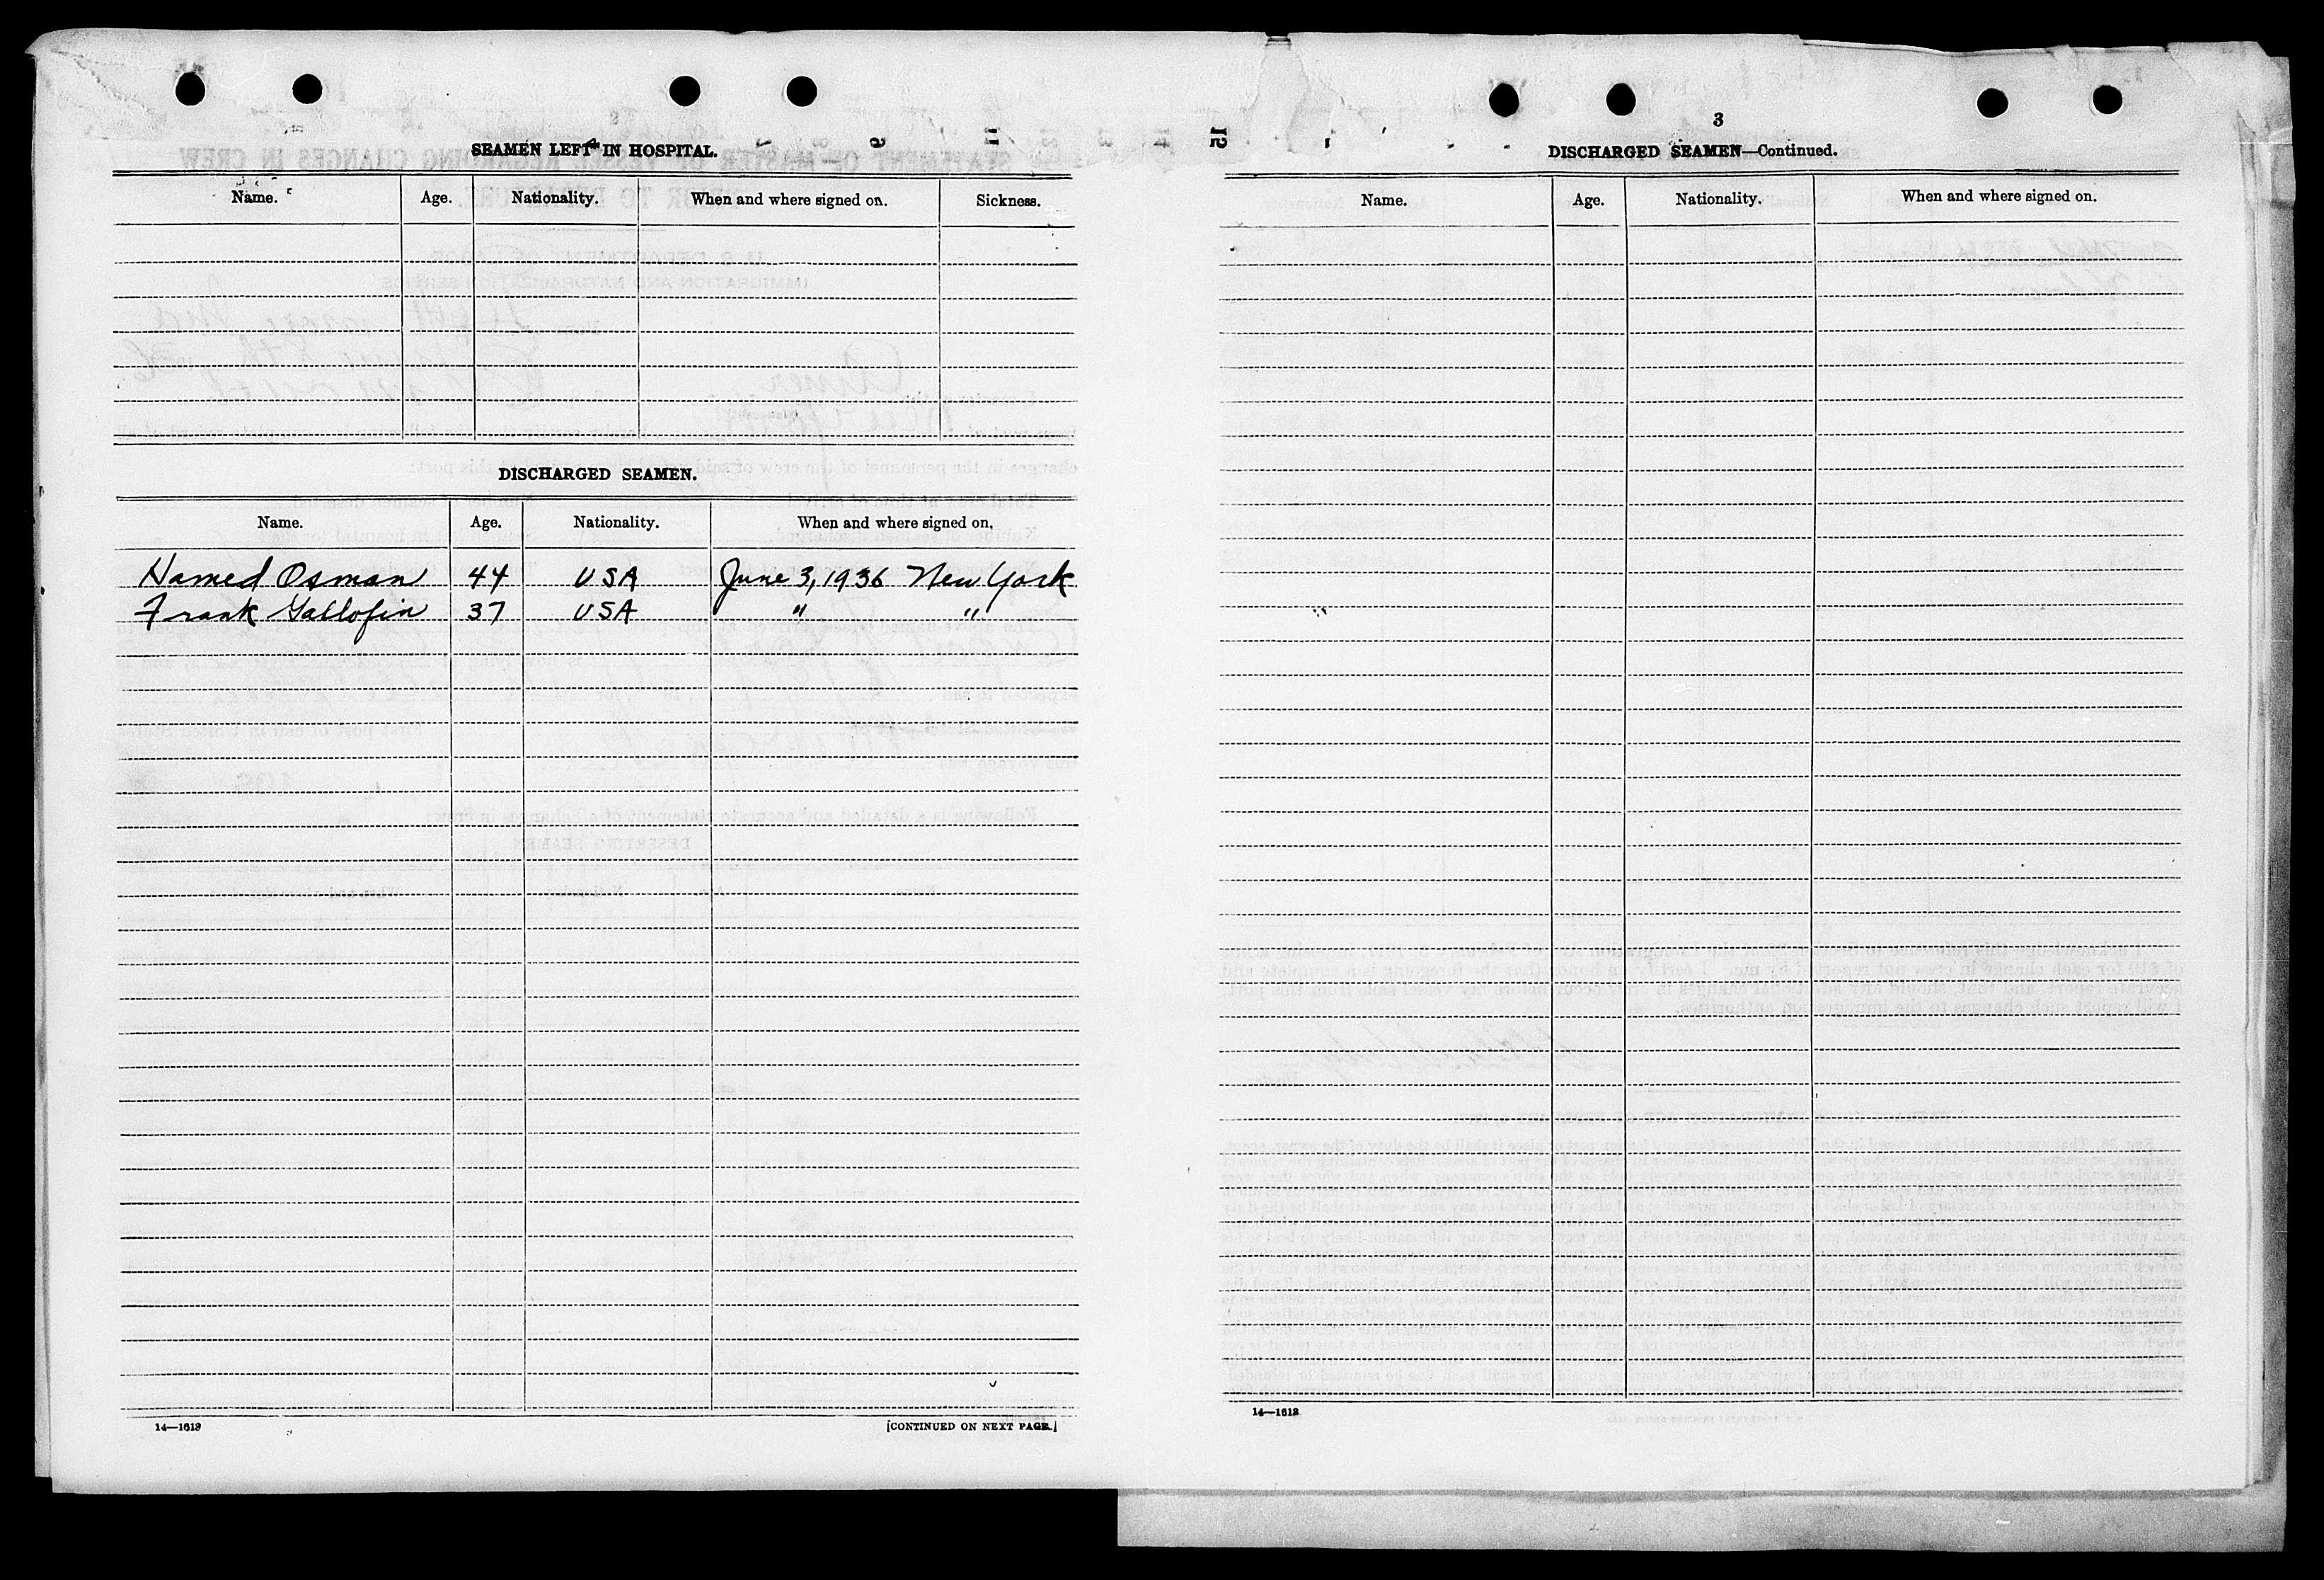 SEAMEN LEFT IN HOSPITAL.
Name. Age. Nationality. When and where signed on. Sickness.
DISCHARGED SEAMEN.
Name. Age. Nationality. When and where signed on.
Hamed Osman 44 USA June 3, 1936 New York
Frank Gallofin 37 USA " "
14—1613
[CONTINUED ON NEXT PAGE.]
3
DISCHARGED SEAMEN—Continued.
Name. Age. Nationality. When and where signed on.
14—1613